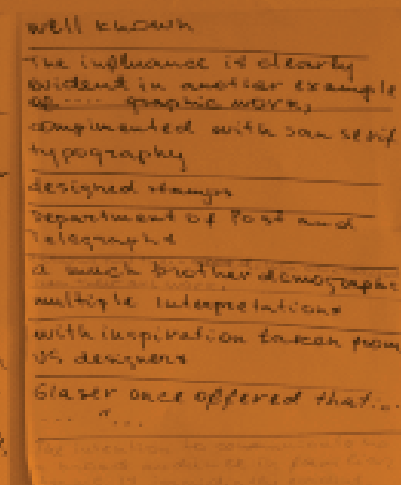 well known
The influance is clearly
evident in another example
of .... graphic work,
complimented with san serif
typography
designed stamps
Department of Post and
Telegraphs
a much brother demographic
multiple interpretations
with inspiration taken from
US designers
Glaser once offered that...
.... "...
The intention to communicate
a broad audience is